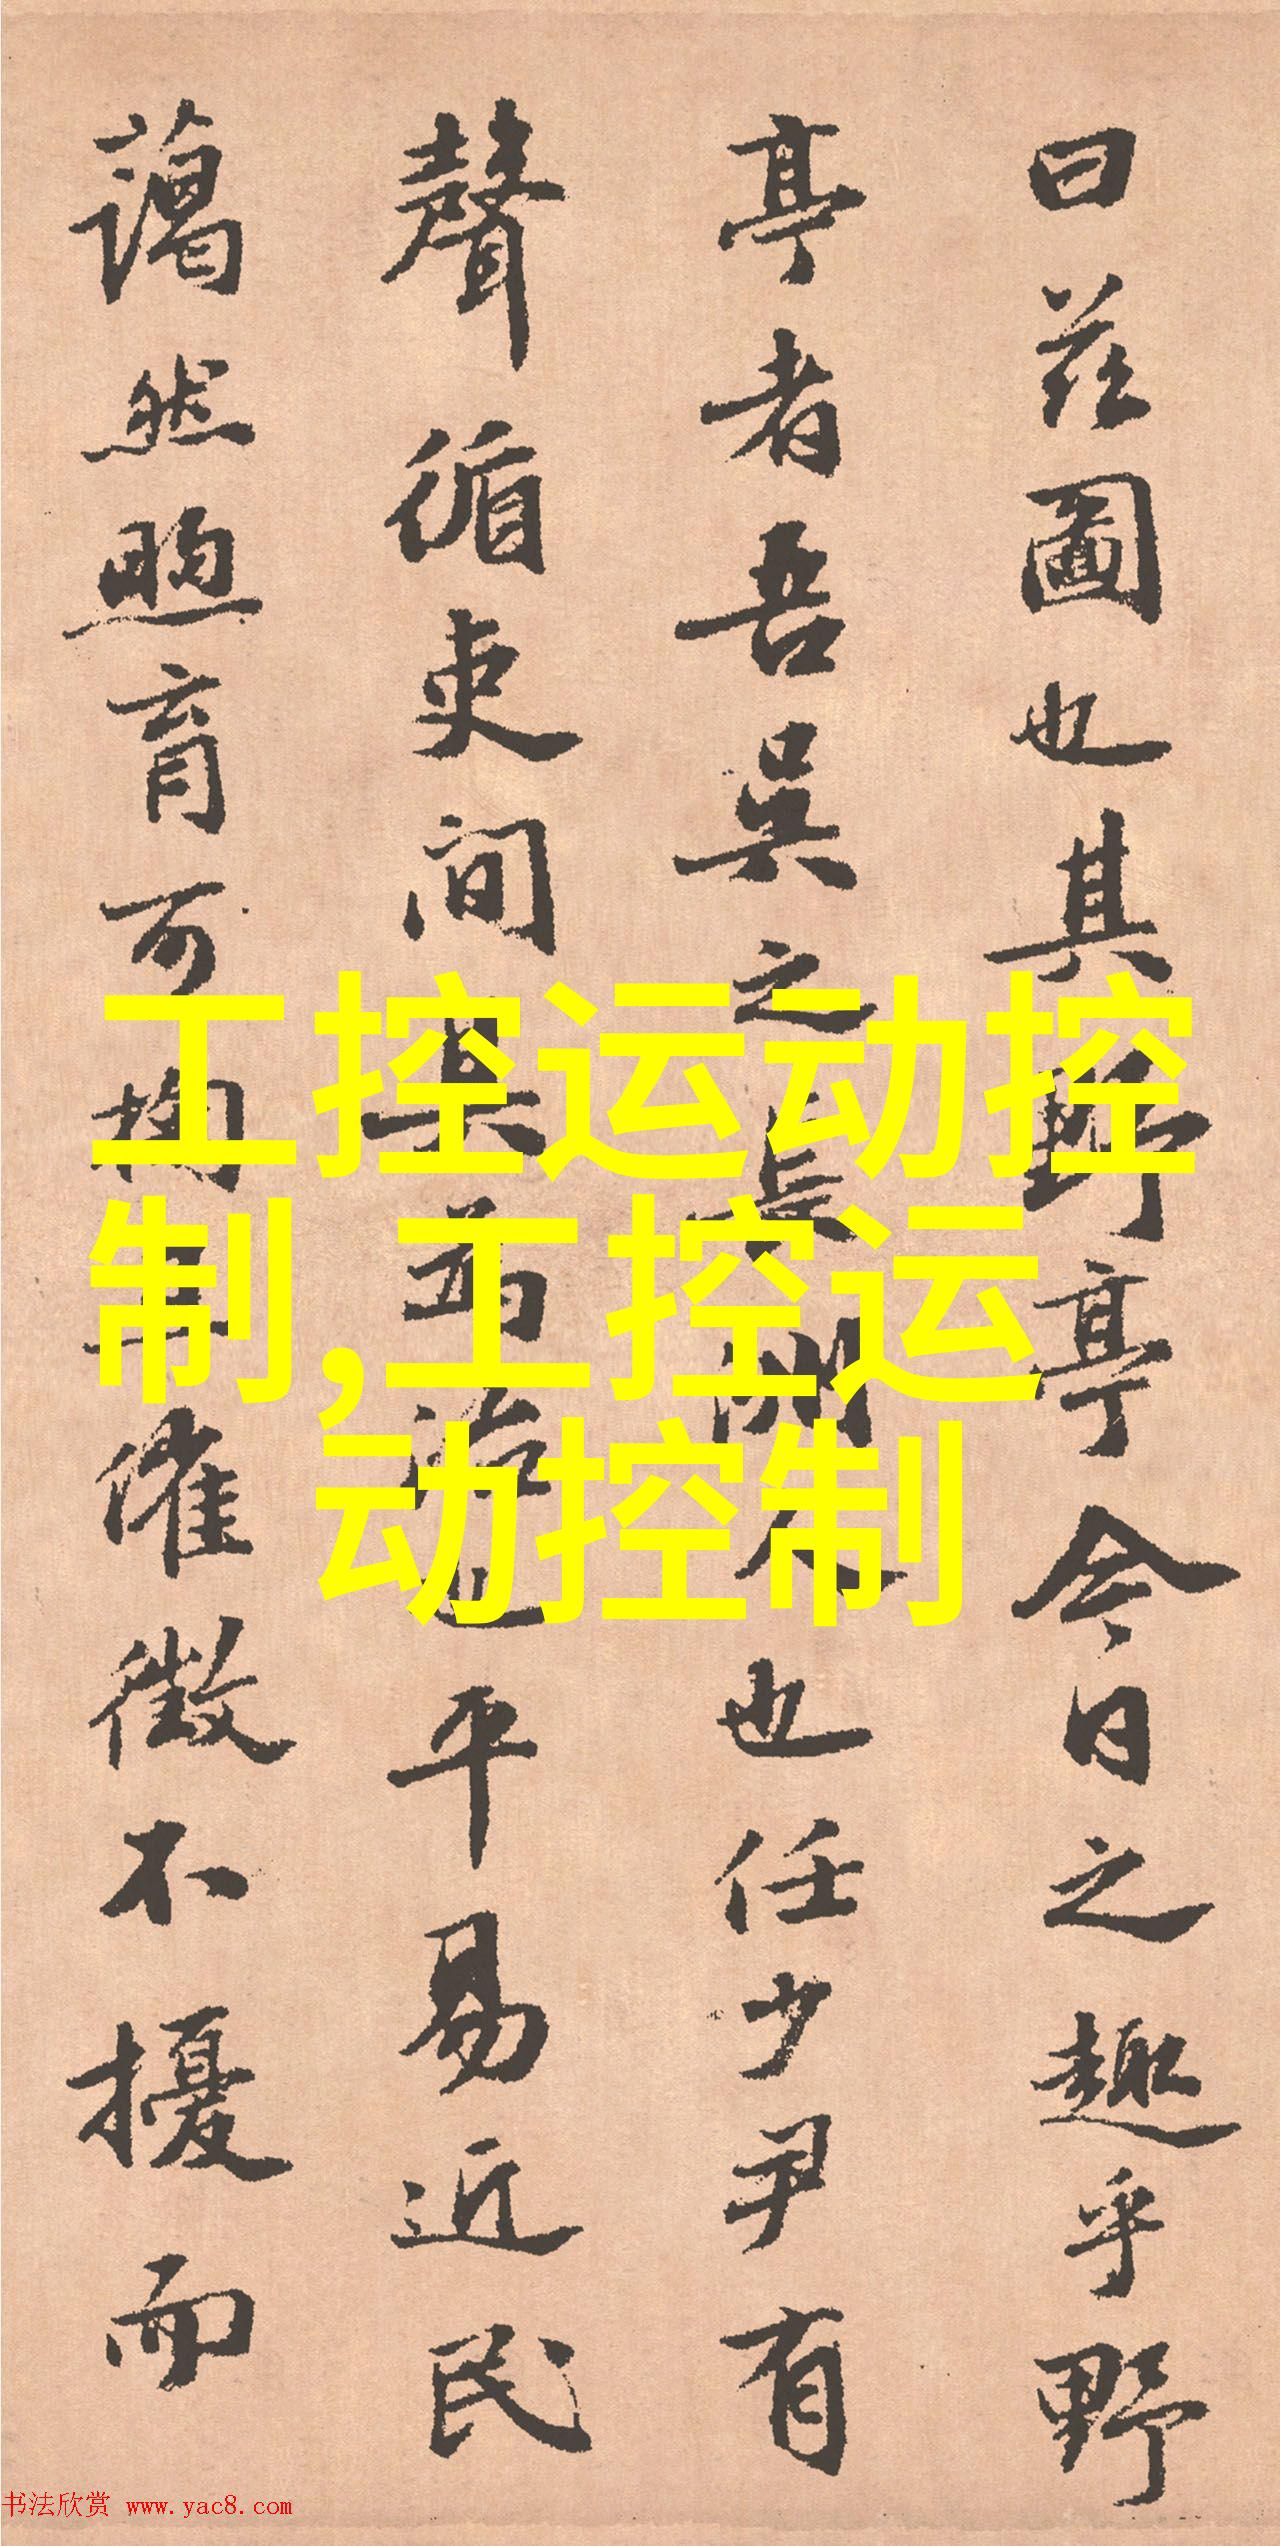 曰茲圖也其野亭今日之趣乎野
亭者吾吳之長洲人也任少尹有
聲循吏间其為治也平易近民
藹然煦育可掬催徵不擾而
工控运动控
制,工控运
动控制
书法欣赏 www.yac8.com